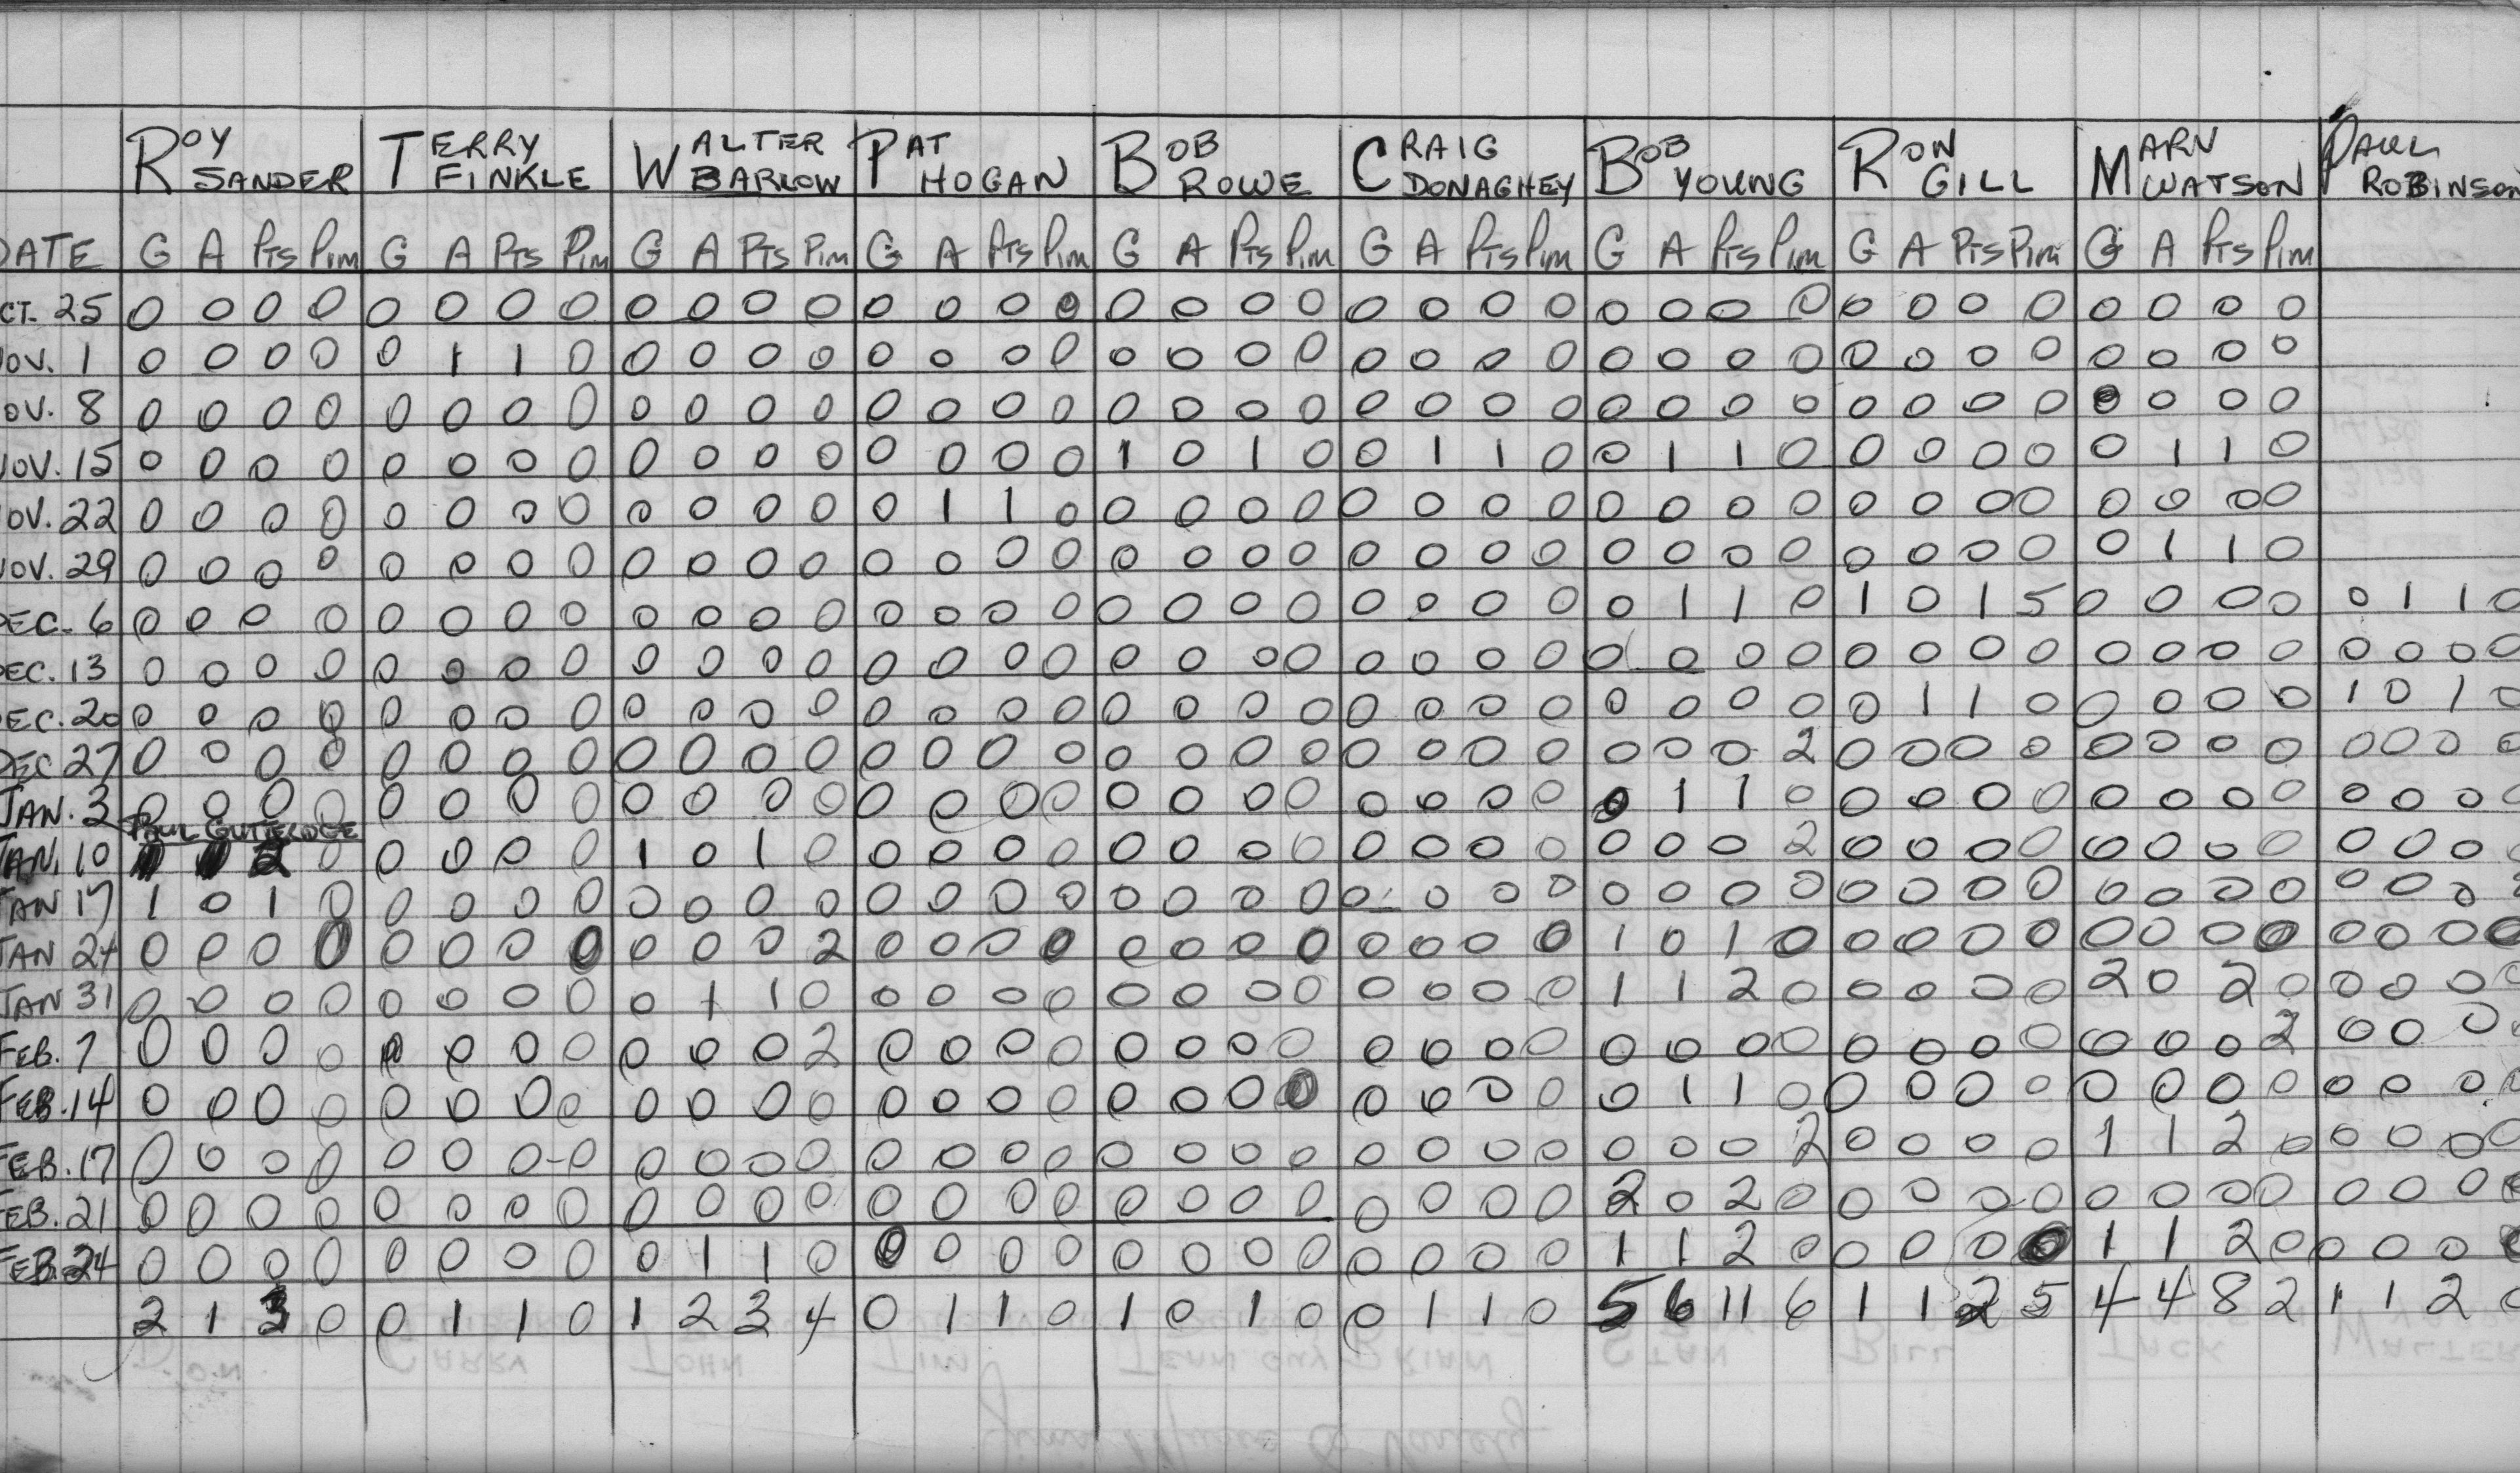 ROY SANDER TERRY FINKLE WALTER BARLOW PAT HOGAN BOB ROWE CRAIG DONAGHEY BOB YOUNG RON GILL MARV WATSON PAUL ROBINSON
DATE G A Pts Pim G A Pts Pim G A Pts Pim G A Pts Pim G A Pts Pim G A Pts Pim G A Pts Pim G A Pts Pim G A Pts Pim
CT. 25 0 0 0 0 0 0 0 0 0 0 0 0 0 0 0 0 0 0 0 0 0 0 0 0 0 0 0 0 0 0 0 0 0 0 0 0
OV. 1 0 0 0 0 0 1 1 0 0 0 0 0 0 0 0 0 0 0 0 0 0 0 0 0 0 0 0 0 0 0 0 0 0 0 0 0
OV. 8 0 0 0 0 0 0 0 0 0 0 0 0 0 0 0 0 0 0 0 0 0 0 0 0 0 0 0 0 0 0 0 0 0 0 0 0
OV. 15 0 0 0 0 0 0 0 0 0 0 0 0 0 0 0 0 1 0 1 0 0 1 1 0 0 1 1 0 0 0 0 0 0 1 1 0
OV. 22 0 0 0 0 0 0 0 0 0 0 0 0 0 1 1 0 0 0 0 0 0 0 0 0 0 0 0 0 0 0 0 0 0 0 0 0
OV. 29 0 0 0 0 0 0 0 0 0 0 0 0 0 0 0 0 0 0 0 0 0 0 0 0 0 0 0 0 0 0 0 0 0 1 1 0
DEC. 6 0 0 0 0 0 0 0 0 0 0 0 0 0 0 0 0 0 0 0 0 0 0 0 0 0 1 1 0 1 0 1 5 0 0 0 0 0 1 1 0
DEC. 13 0 0 0 0 0 0 0 0 0 0 0 0 0 0 0 0 0 0 0 0 0 0 0 0 0 0 0 0 0 0 0 0 0 0 0 0 0 0 0 0
DEC. 20 0 0 0 0 0 0 0 0 0 0 0 0 0 0 0 0 0 0 0 0 0 0 0 0 0 0 0 0 0 1 1 0 0 0 0 0 1 0 1 0
DEC 27 0 0 0 0 0 0 0 0 0 0 0 0 0 0 0 0 0 0 0 0 0 0 0 0 0 0 0 2 0 0 0 0 0 0 0 0 0 0 0 0
JAN. 3 0 0 0 0 0 0 0 0 0 0 0 0 0 0 0 0 0 0 0 0 0 0 0 0 0 1 1 0 0 0 0 0 0 0 0 0 0 0 0 0
PAUL GUTTERIDGE
JAN. 10 1 1 2 0 0 0 0 0 1 0 1 0 0 0 0 0 0 0 0 0 0 0 0 0 0 0 0 2 0 0 0 0 0 0 0 0 0 0 0
JAN 17 1 0 1 0 0 0 0 0 0 0 0 0 0 0 0 0 0 0 0 0 0 0 0 0 0 0 0 0 0 0 0 0 0 0 0 0 0 0 0
JAN 24 0 0 0 0 0 0 0 0 0 0 0 2 0 0 0 0 0 0 0 0 0 0 0 0 1 0 1 0 0 0 0 0 0 0 0 0 0 0 0 0
JAN 31 0 0 0 0 0 0 0 0 0 1 1 0 0 0 0 0 0 0 0 0 0 0 0 0 1 1 2 0 0 0 0 0 2 0 2 0 0 0 0 0
FEB. 7 0 0 0 0 0 0 0 0 0 0 0 2 0 0 0 0 0 0 0 0 0 0 0 0 0 0 0 0 0 0 0 0 0 0 0 2 0 0 0 0
FEB. 14 0 0 0 0 0 0 0 0 0 0 0 0 0 0 0 0 0 0 0 0 0 0 0 0 0 1 1 0 0 0 0 0 0 0 0 0 0 0 0 0
FEB. 17 0 0 0 0 0 0 0-0 0 0 0 0 0 0 0 0 0 0 0 0 0 0 0 0 0 0 0 2 0 0 0 0 1 1 2 0 0 0 0 0
FEB. 21 0 0 0 0 0 0 0 0 0 0 0 0 0 0 0 0 0 0 0 0 0 0 0 0 2 0 2 0 0 0 0 0 0 0 0 0 0 0 0 0
FEB. 24 0 0 0 0 0 0 0 0 0 1 1 0 0 0 0 0 0 0 0 0 0 0 0 0 1 1 2 0 0 0 0 0 1 1 2 0 0 0 0 0
2 1 3 0 0 1 1 0 1 2 3 4 0 1 1 0 1 0 1 0 0 1 1 0 5 6 11 6 1 1 2 5 4 4 8 2 1 1 2 0